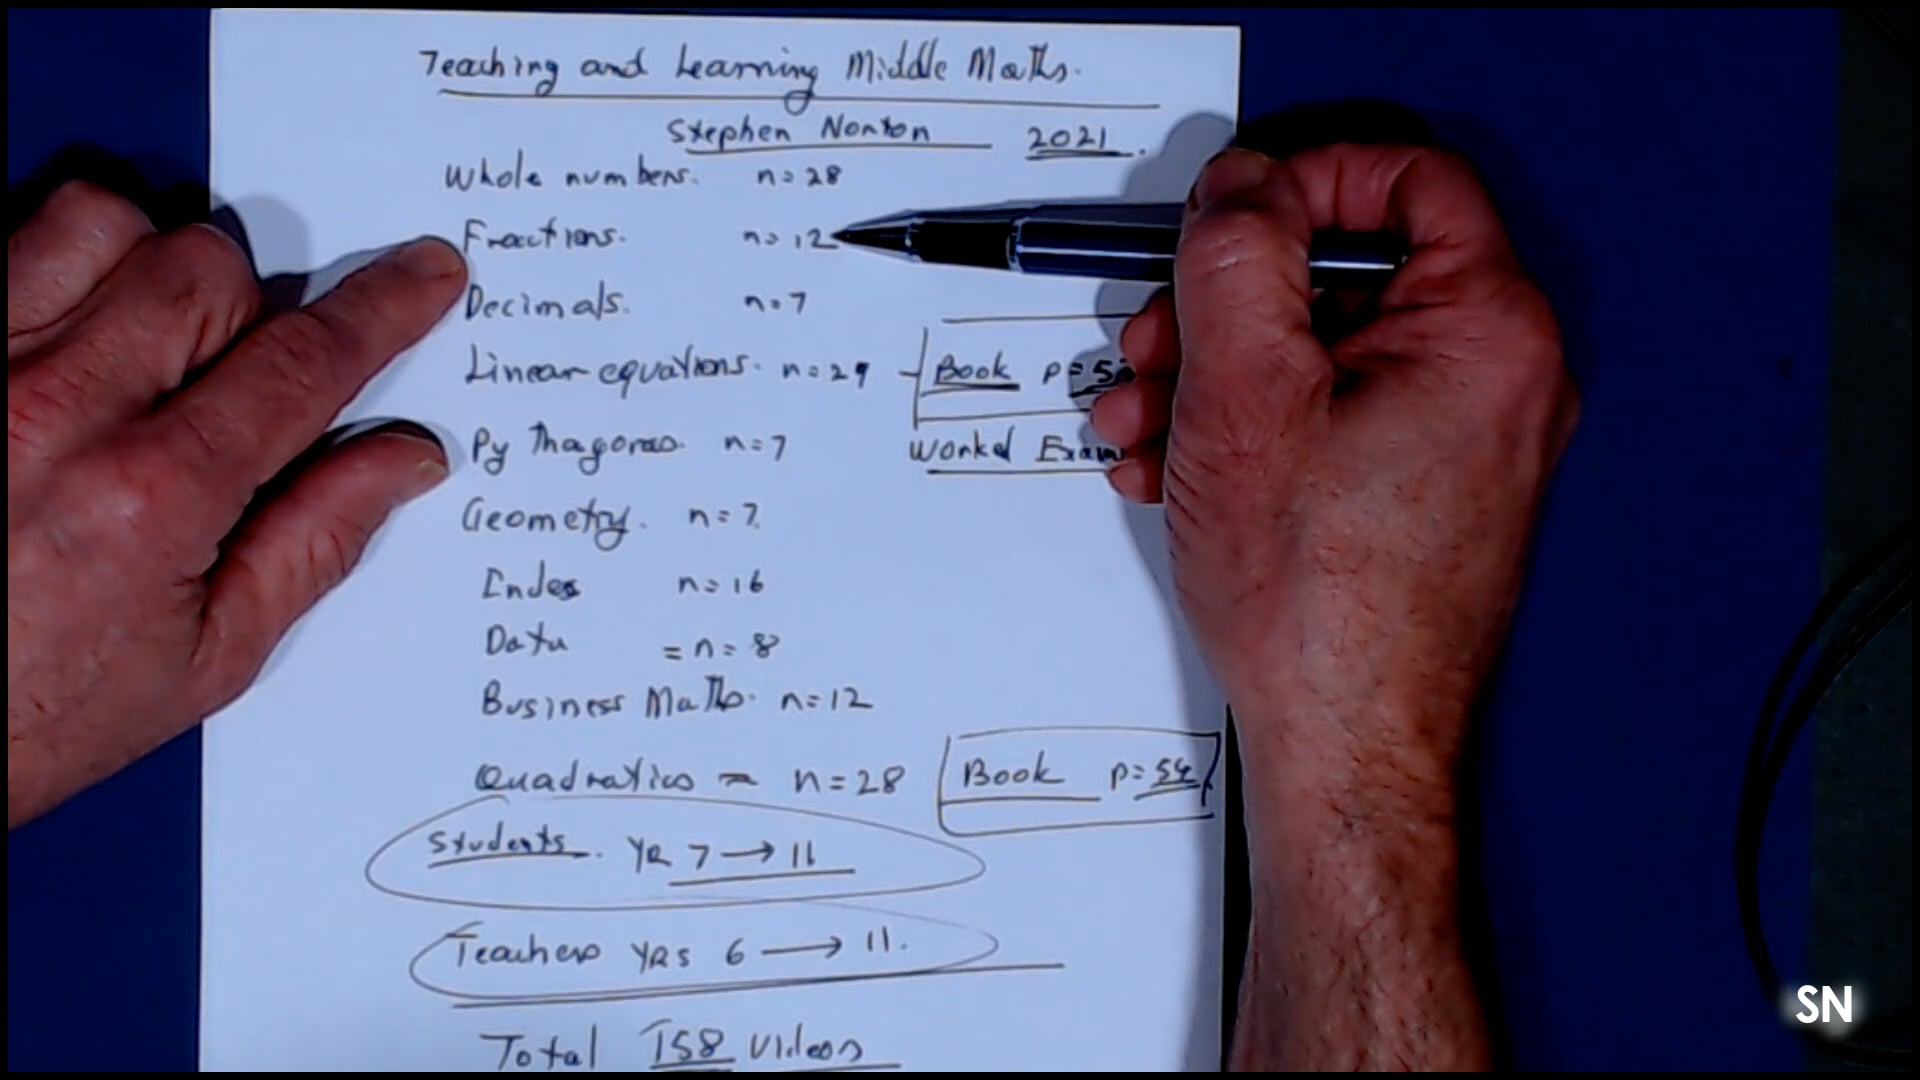 Teaching and Learning Middle Maths.
Stephen Norton 2021.
Whole numbers. n = 28
Fractions. n = 12
Decimals. n = 7
Linear equations. n = 29 Book p =
Pythagoras. n = 7 Worked
Geometry. n = 7.
Index n = 16
Data = n = 8
Business Maths. n = 12
Quadratics n = 28 Book p = 54
Students. YR 7 → 11
Teachers YRS 6 → 11.
Total 158 videos
SN